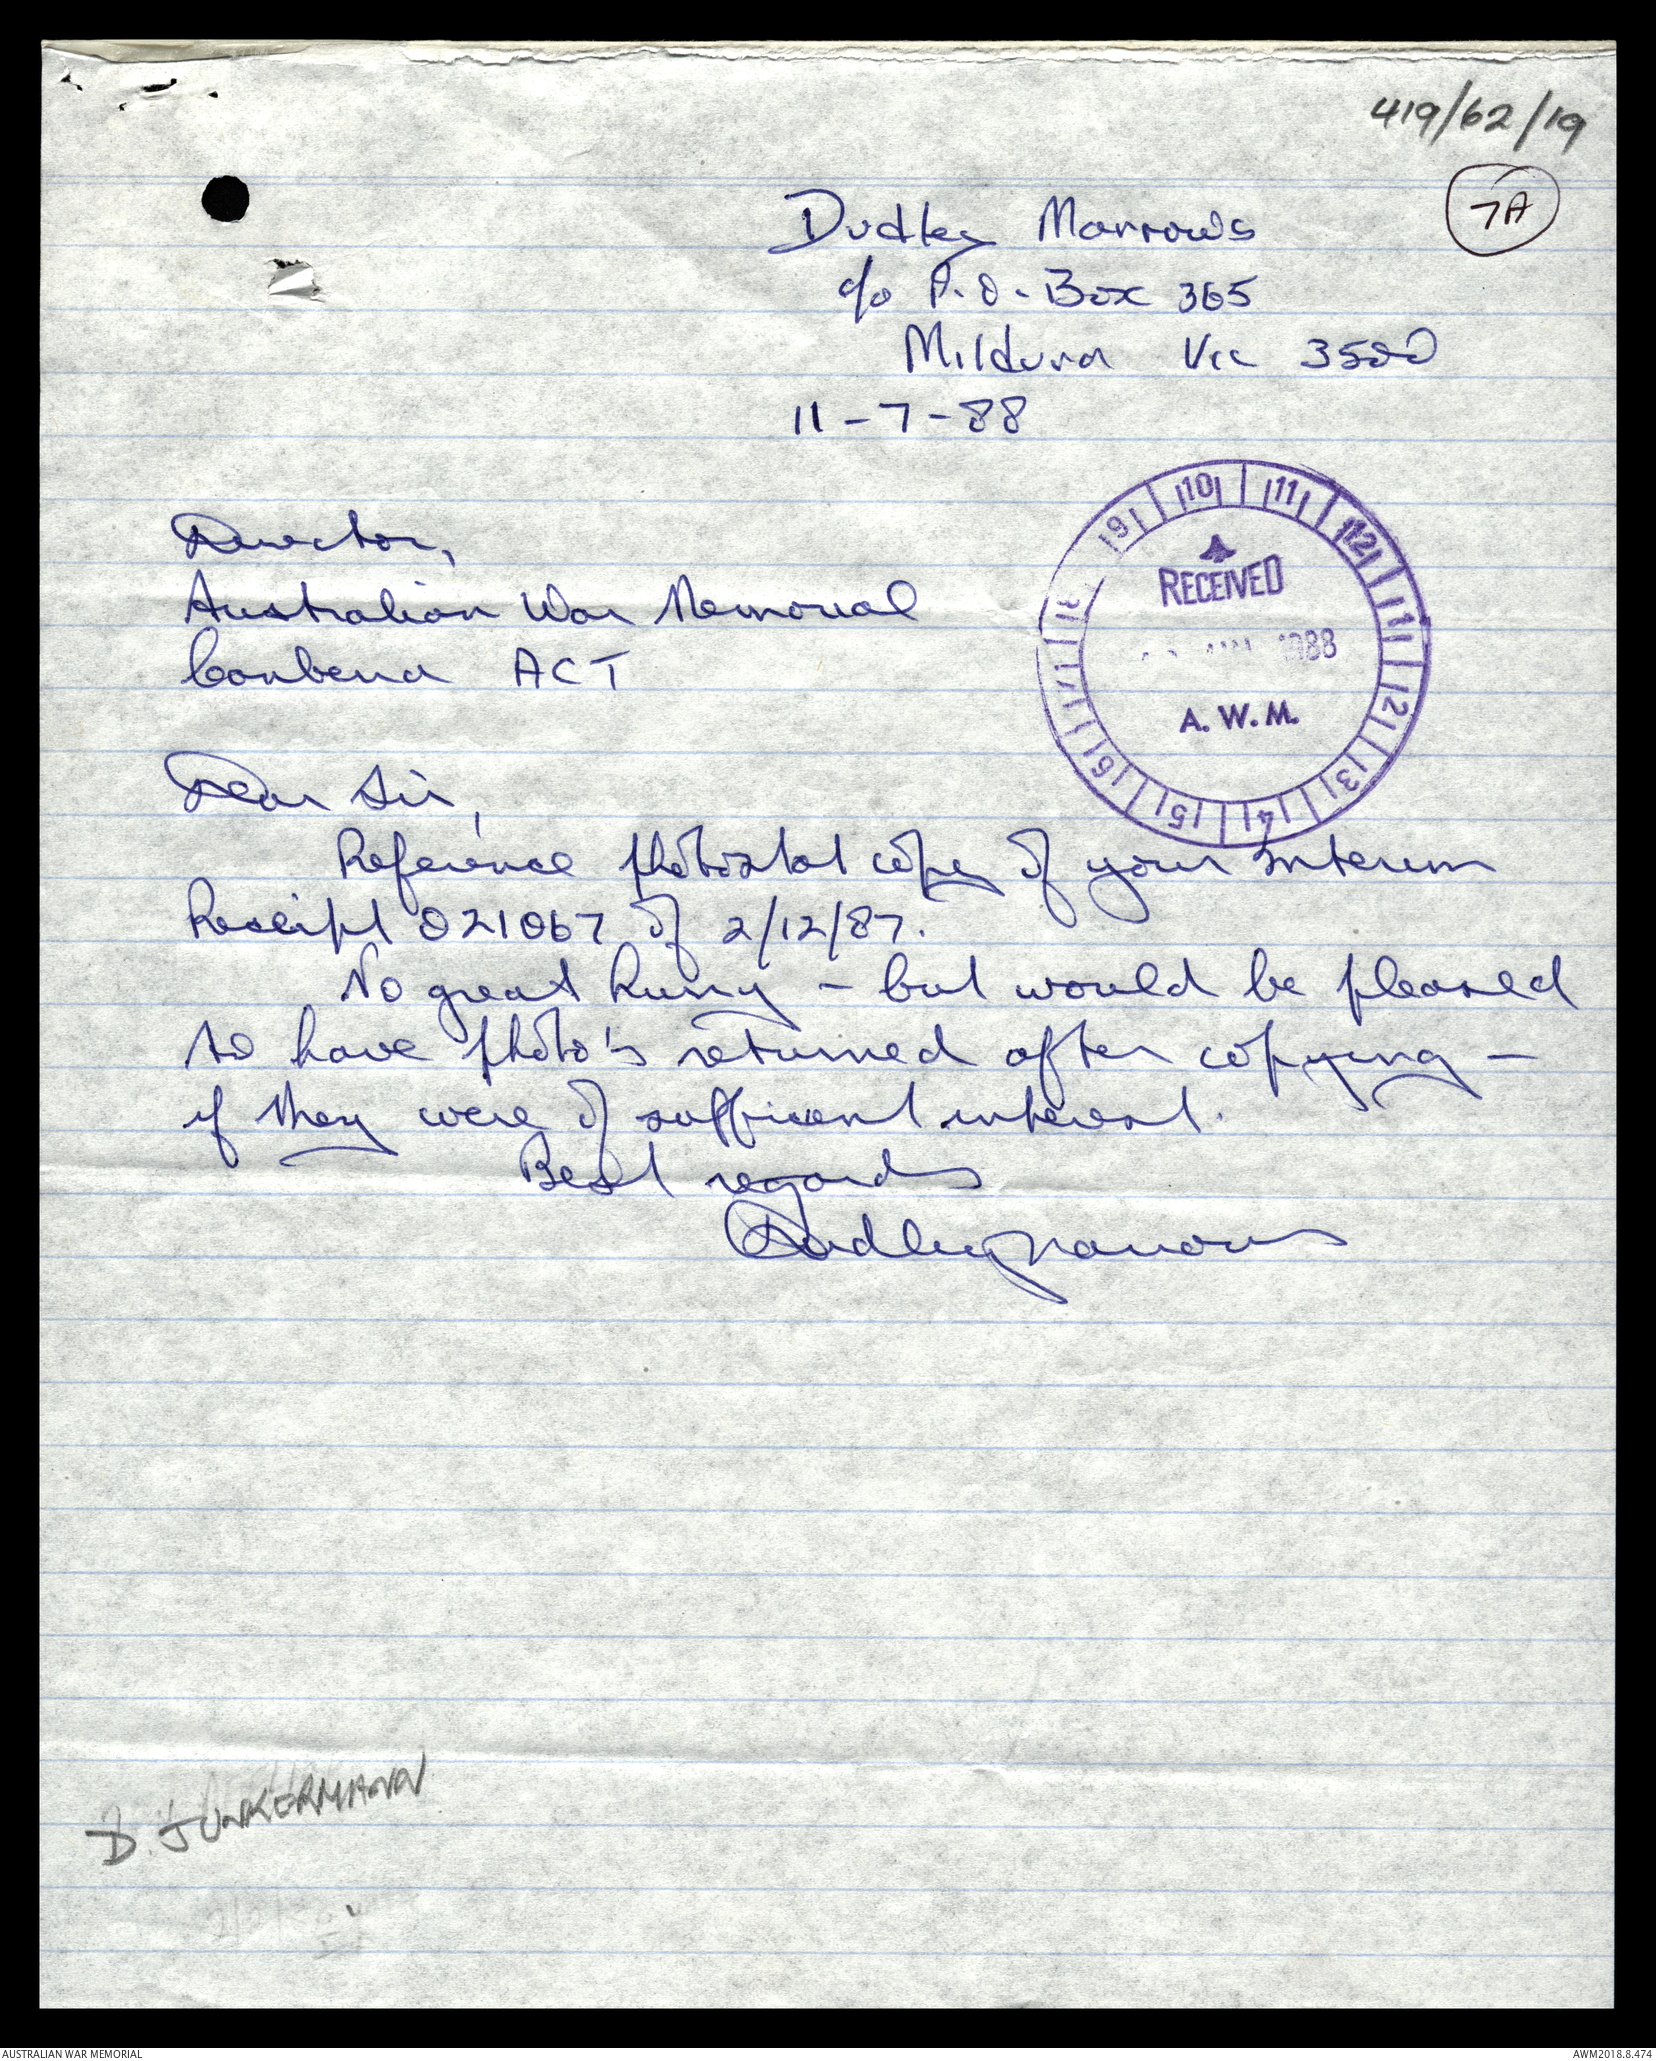 419/62/19
7A
Dudley Marrows
c/o P.O. Box 365
Mildura Vic 3500
11-7-88
Director,
Australian War Memorial
Canberra ACT
9 10 11 12 1 2 3 4 5 6 7 8
RECEIVED
1988
A.W.M.
Dear Sir,
Reference photostat copy of your Interim
Receipt 021067 of 2/12/87.
No great hurry - but would be pleased
to have photo's returned after copying -
if they were of sufficient interest.
Best regards
Dudley Marrows
D. JUNKERMANN
AUSTRALIAN WAR MEMORIAL
AWM2018.8.474